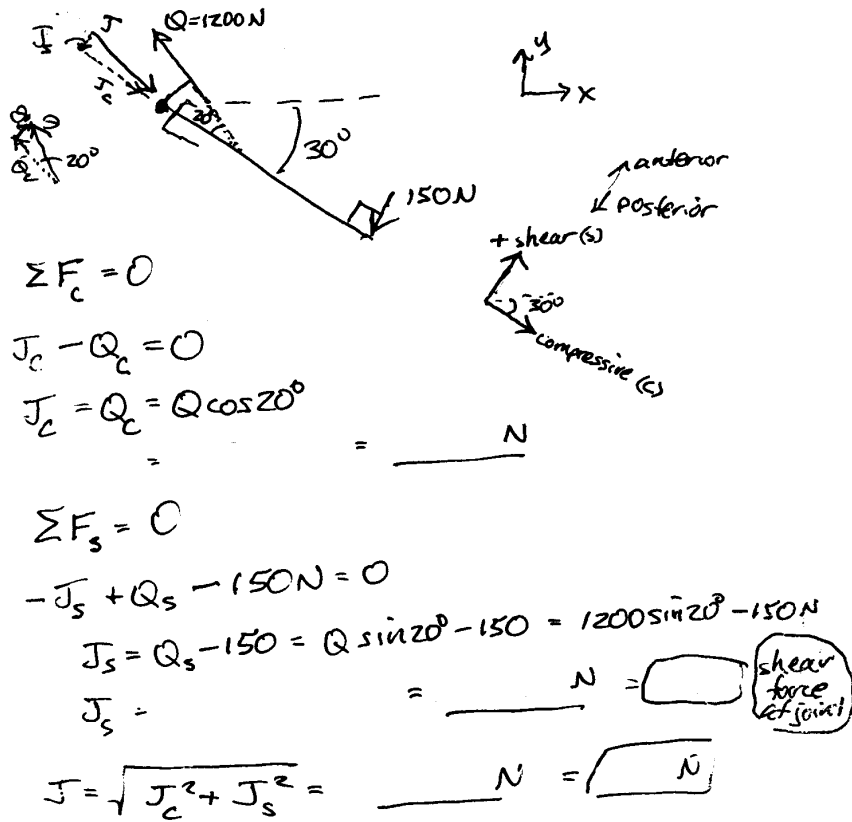 Js J Q=1200N
Jc
y
x
Qs Q
Qc 20°
20°
30°
150N
anterior
posterior
+ shear (s)
30°
compressive (c)
ΣFc = 0
Jc - Qc = 0
Jc = Qc = Qcos20°
= = ____ N
ΣFs = 0
-Js + Qs - 150N = 0
Js = Qs - 150 = Q sin20° - 150 = 1200 sin20° - 150N
Js = = ____ N = shear force at joint
J = √Jc² + Js² = ____ N = N